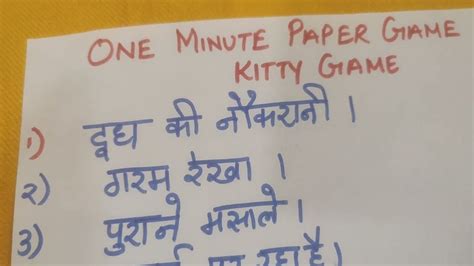 ONE MINUTE PAPER GAME
KITTY GAME
1) दूध की नौकरानी ।
2) गरम रेखा ।
3) पुराने मसाले ।
पर रहा है।